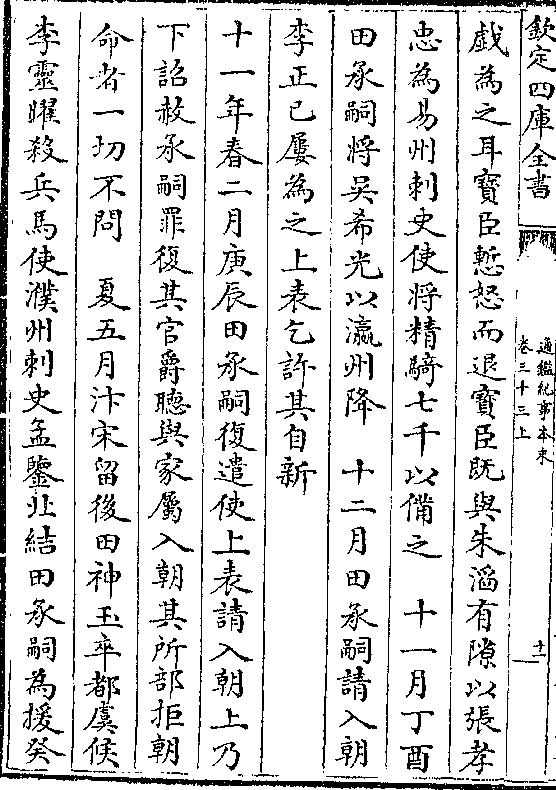 欽定四庫全書
通鑑紀事本末
卷三十三上
十一
戲為之耳寶臣慙怒而退寶臣既與朱滔有隙以張孝
忠為易州刺史使將精騎七千以備之　十一月丁酉
田承嗣將吳希光以瀛州降　十二月田承嗣請入朝
李正已屢為之上表乞許其自新
十一年春二月庚辰田承嗣復遣使上表請入朝上乃
下詔赦承嗣罪復其官爵聽與家屬入朝其所部拒朝
命者一切不問　夏五月汴宋留後田神玉卒都虞候
李靈曜殺兵馬使濮州刺史孟鑒北結田承嗣為援癸